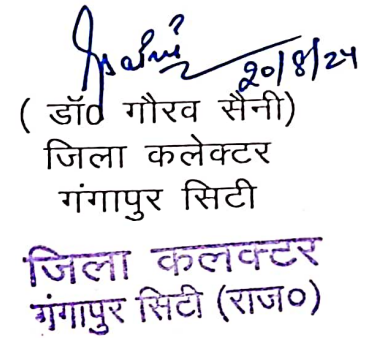 20/8/24
( डॉ0 गौरव सैनी)
जिला कलेक्टर
गंगापुर सिटी
जिला कलक्टर
गंगापुर सिटी (राज०)